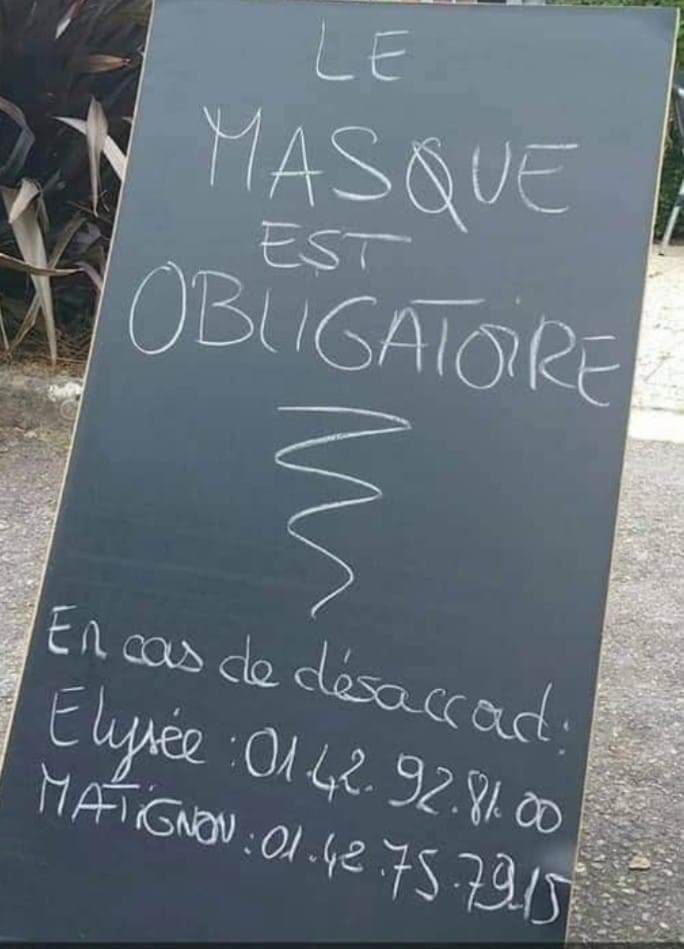 LE
MASQUE
EST
OBLIGATOIRE
En cas de désaccord :
Elysée : 01.42.92.81.00
MATiGNON : 01.42.75.79.15